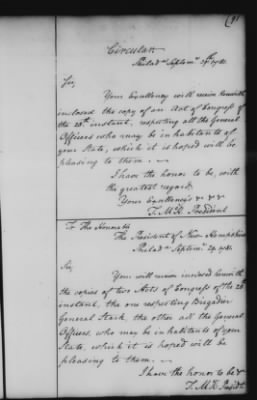 191
Circular
Philad.ᵃ Septem.ʳ 29th 1781.
Sir,
Your Excellency will receive herewith
inclosed the copy of an Act of Congress of
the 28th instant, respecting all the General
Officers who may be inhabitants of
your State, which it is hoped will be
pleasing to them. —
I have the honor to be, with
the greatest regard
Your Excellency's &c &c
T. M.K. President
To The Honorable
The President of New Hampshire
Philad.ᵃ Septem.ʳ 29. 1781.
Sir,
You will receive inclosed herewith
the copies of two Acts of Congress of the 28th
instant, the one respecting Brigadier
General Stark, the other all the General
Officers, who may be inhabitants of your
State, which it is hoped will be
pleasing to them. —
I have the honor to be &c
T. M.K. Presidt.